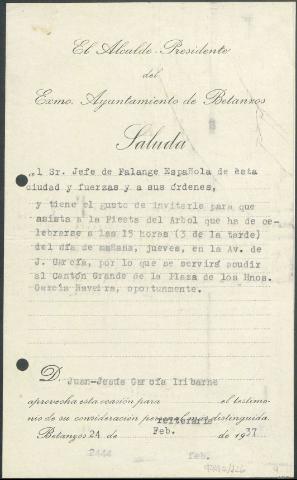 El Alcalde-Presidente
del
Exmo. Ayuntamiento de Betanzos
Saluda
al Sr. Jefe de Falange Española de esta
ciudad y fuerzas y a sus órdenes,
y tiene el gusto de invitarle para que
asista a la Fiesta del Arbol que ha de ce-
lebrarse a las 15 horas (3 de la tarde)
del día de mañana, jueves, en la Av. de
J. García, por lo que se servirá acudir
al Cantón Grande de la Plaza de los Hnos.
García Naveira, oportunamente.
D. Juan-Jesús García Iribarne
aprovecha esta ocasión para reiterarle el testimo-
nio de su consideración personal mas distinguida.
Betanzos 24 de Feb. de 1937
2444 feb.